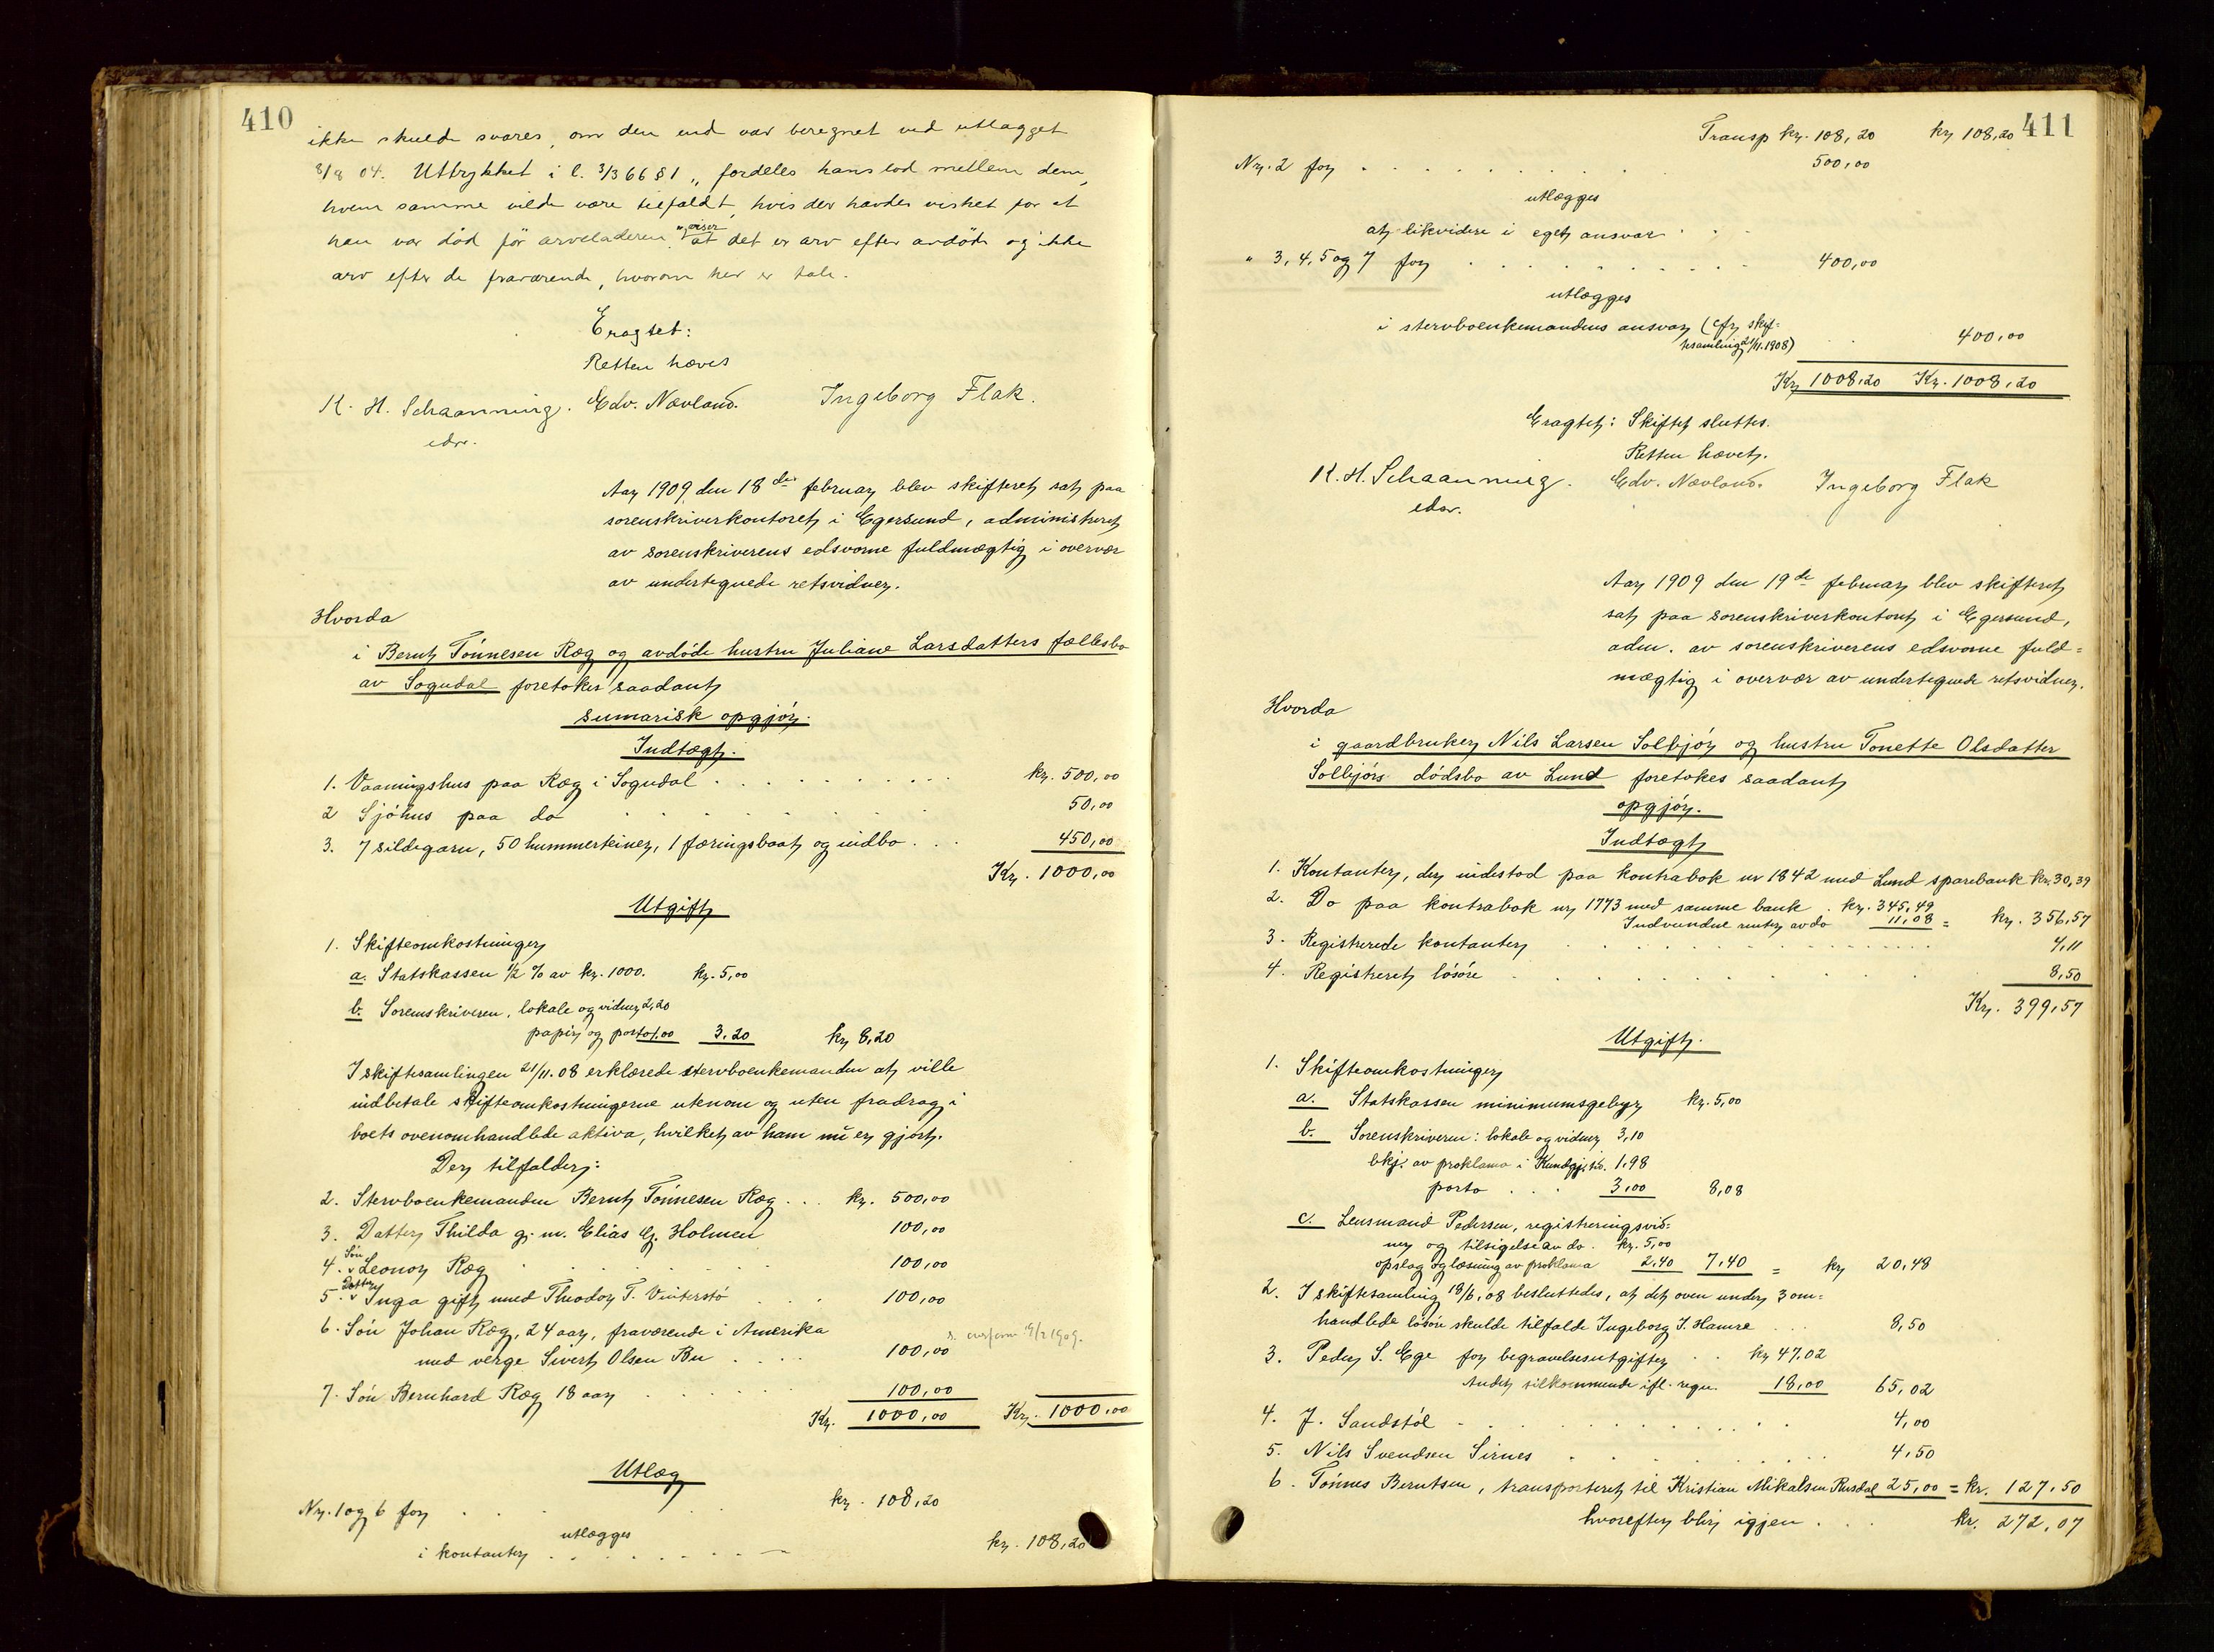 410
ikke skulde svares, om den end var beregnet ved utlægget
8/8 04. Uttrykket i l. 3/3 66 § 1 „ fordeles hans lod mellem dem,
hvem samme vilde være tilfaldt, hvis der havdes vished for at
han var død før arveladeren" viser at det er arv efter avdøde og ikke
arv efter de fraværende, hvorom her er tale.
Eragtet:
Retten hæves
K. H. Schaanning. Edv. Nævland. Ingeborg Flak.
edsv.
Aar 1909 den 18de februar blev skifteret sat paa
sorenskriverkontoret i Egersund, administreret
av sorenskriverens edsvorne fuldmægtig i overvær
av undertegnede retsvidner.
Hvorda
i Bernt Tønnesen Ræg og avdøde hustru Juliane Larsdatters fællesbo
av Sogndal foretokes saadant
sumarisk opgjør.
Indtægt.
1. Vaaningshus paa Ræg i Sogndal . . . kr. 500,00
2 Sjøhus paa do . . . 50,00
3. 7 sildegarn, 50 hummerteiner, 1 færingsbaat og indbo . . . 450,00
Kr. 1000,00
Utgift
1. Skifteomkostninger
a. Statskassen ½ % av kr. 1000. kr. 5,00
b. Sorenskriveren, lokale og vidner 2,20
papir og porto 1.00 3.20 kr 8,20
I skiftesamlingen 21/11.08 erklærede stervboenkemanden at ville
indbetale skifteomkostningerne utenom og uten fradrag i
boets ovenomhandlede aktiva, hvilket av ham nu er gjort.
Der tilfalder:
2. Stervboenkemanden Bernt Tønnesen Ræg . . . kr. 500,00
3. Datter Thilda g. m. Elias G. Holmen 100,00
4. Søn Leonor Ræg . . . 100,00
5. Datter Inga gift med Theodor T. Vinterstø . . . 100,00
6. Søn Johan Ræg, 24 aar, fraværende i Amerika
med verge Sivert Olsen Bu . . . 100,00
7. Søn Bernhard Ræg 18 aar . . . 100,00
Kr. 1000,00 Kr. 1000,00
Utlæg
Nr. 1 og 6 for . . . kr. 108,20
utlægges
i kontanter . . . kr. 108,20
411
Transp kr. 108,20 kr 108,20
Nr. 2 for . . . 500,00
utlægges
at likvidere i eget ansvar . .
" 3, 4, 5 og 7 for . . . 400,00
utlægges
i stervboenkemandens ansvar (cfr skif=
tesamling 21/11.1908) . . 400,00
Kr 1008,20 Kr. 1008,20
Eragtet: Skiftet sluttes.
Retten hævet.
K. H. Schaanning. Edv. Nævland. Ingeborg Flak
edsv.
Aar 1909 den 19de februar blev skifteret
sat paa sorenskriverkontoret i Egersund,
adm. av sorenskriverens edsvorne fuld=
mægtig i overvær av undertegnede retsvidner.
Hvorda
i gaardbruker Nils Larsen Solbjør og hustru Tonette Olsdatter
Solbjørs dødsbo av Lund foretokes saadant
opgjør.
Indtægt
1. Kontanter, der indestod paa kontrabok nr 1842 med Lund sparebank kr. 30,39
2. Do paa kontrabok nr 1773 med samme bank . kr. 345,49
Indvundne renter av do 11,08 = kr. 356,57
3. Registrerede kontanter . . . 4,11
4. Registreret løsøre . . . 8,50
Kr. 399,57
Utgift.
1. Skifteomkostninger
a. Statskassen minimumsgebyr kr. 5,00
b. Sorenskriveren: lokale og vidner 3,10
bkj. av proklama i Kundgj.tid. 1.98
porto . . . 3,00 8,08
c. Lensmand Pedersen, registreringsvid=
ner og tilsigelse av do. kr. 5,00
opslag og læsning av proklama 2,40 7,40 = kr 20,48
2. I skiftesamling 18/6.08 besluttedes, at det oven under 3 om=
handlede løsøre skulde tilfalde Ingeborg I. Hamre . . . 8,50
3. Peder S. Ege for begravelsesutgifter . . kr 47.02
Andet tilkommende ifl. regn. 18,00 65,02
4. J. Sandstøl . . . 4,00
5. Nils Svendsen Sirnes . . . 4.50
6. Tønnes Berntsen, transporteret til Kristian Mikalsen Rusdal 25,00 = kr. 127.50
hvorefter blir igjen . . . kr. 272,07